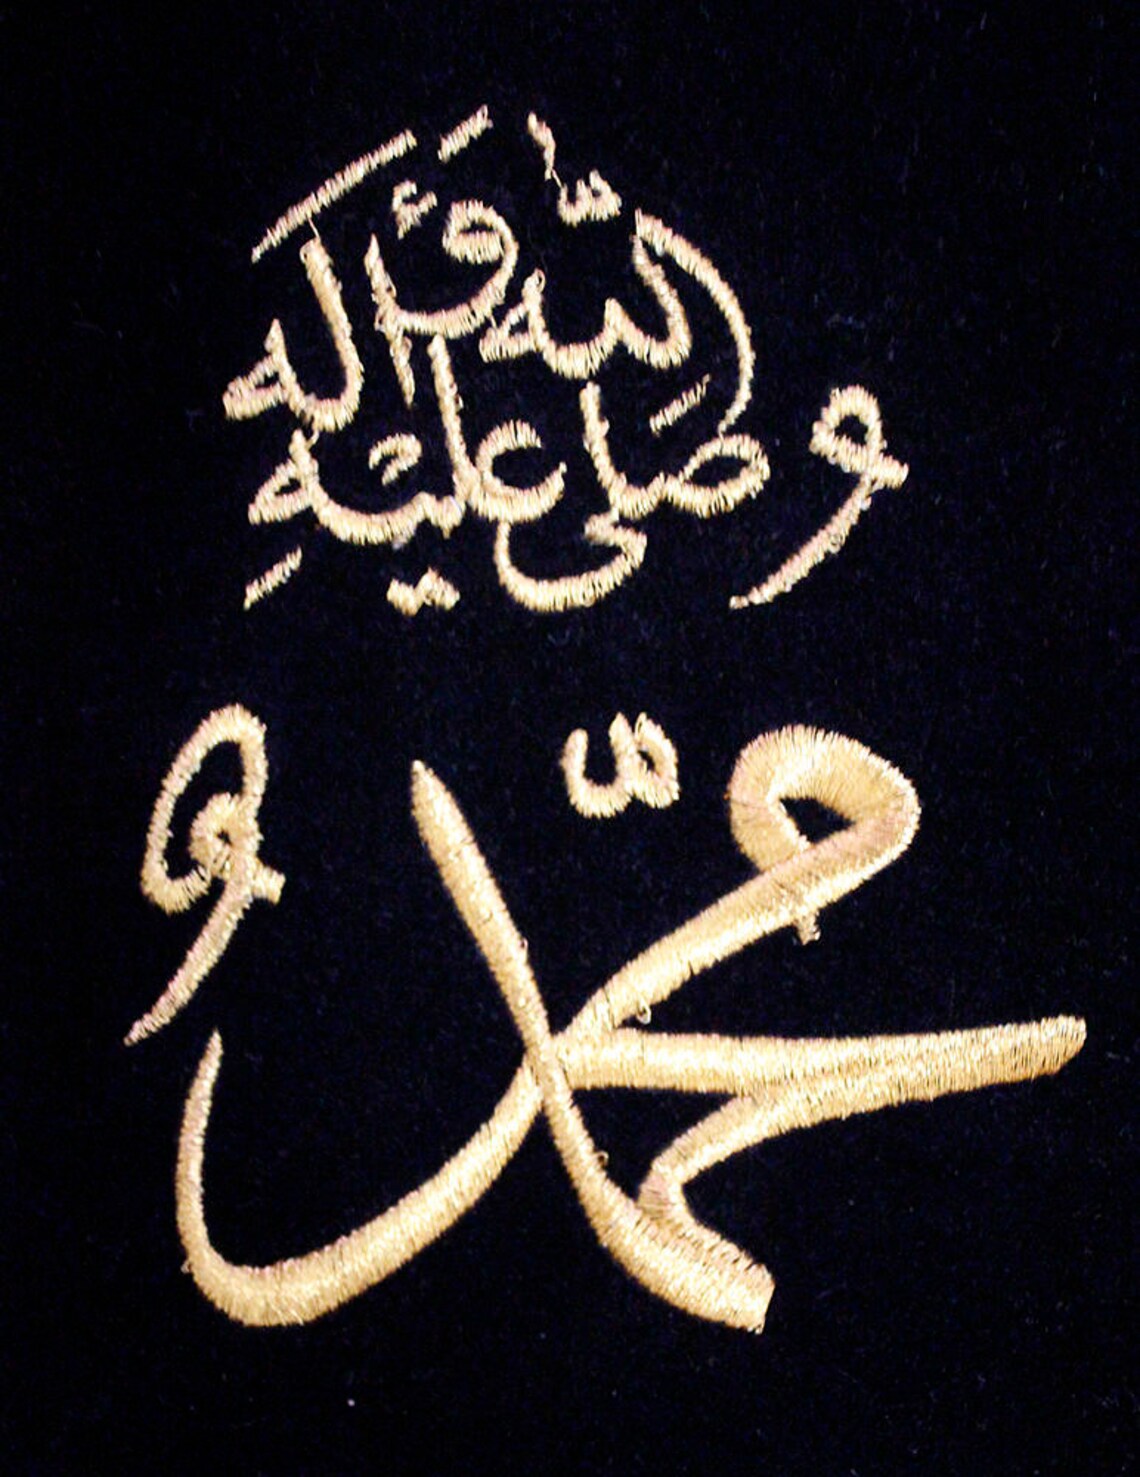 صلى الله عليه وآله
محمّد